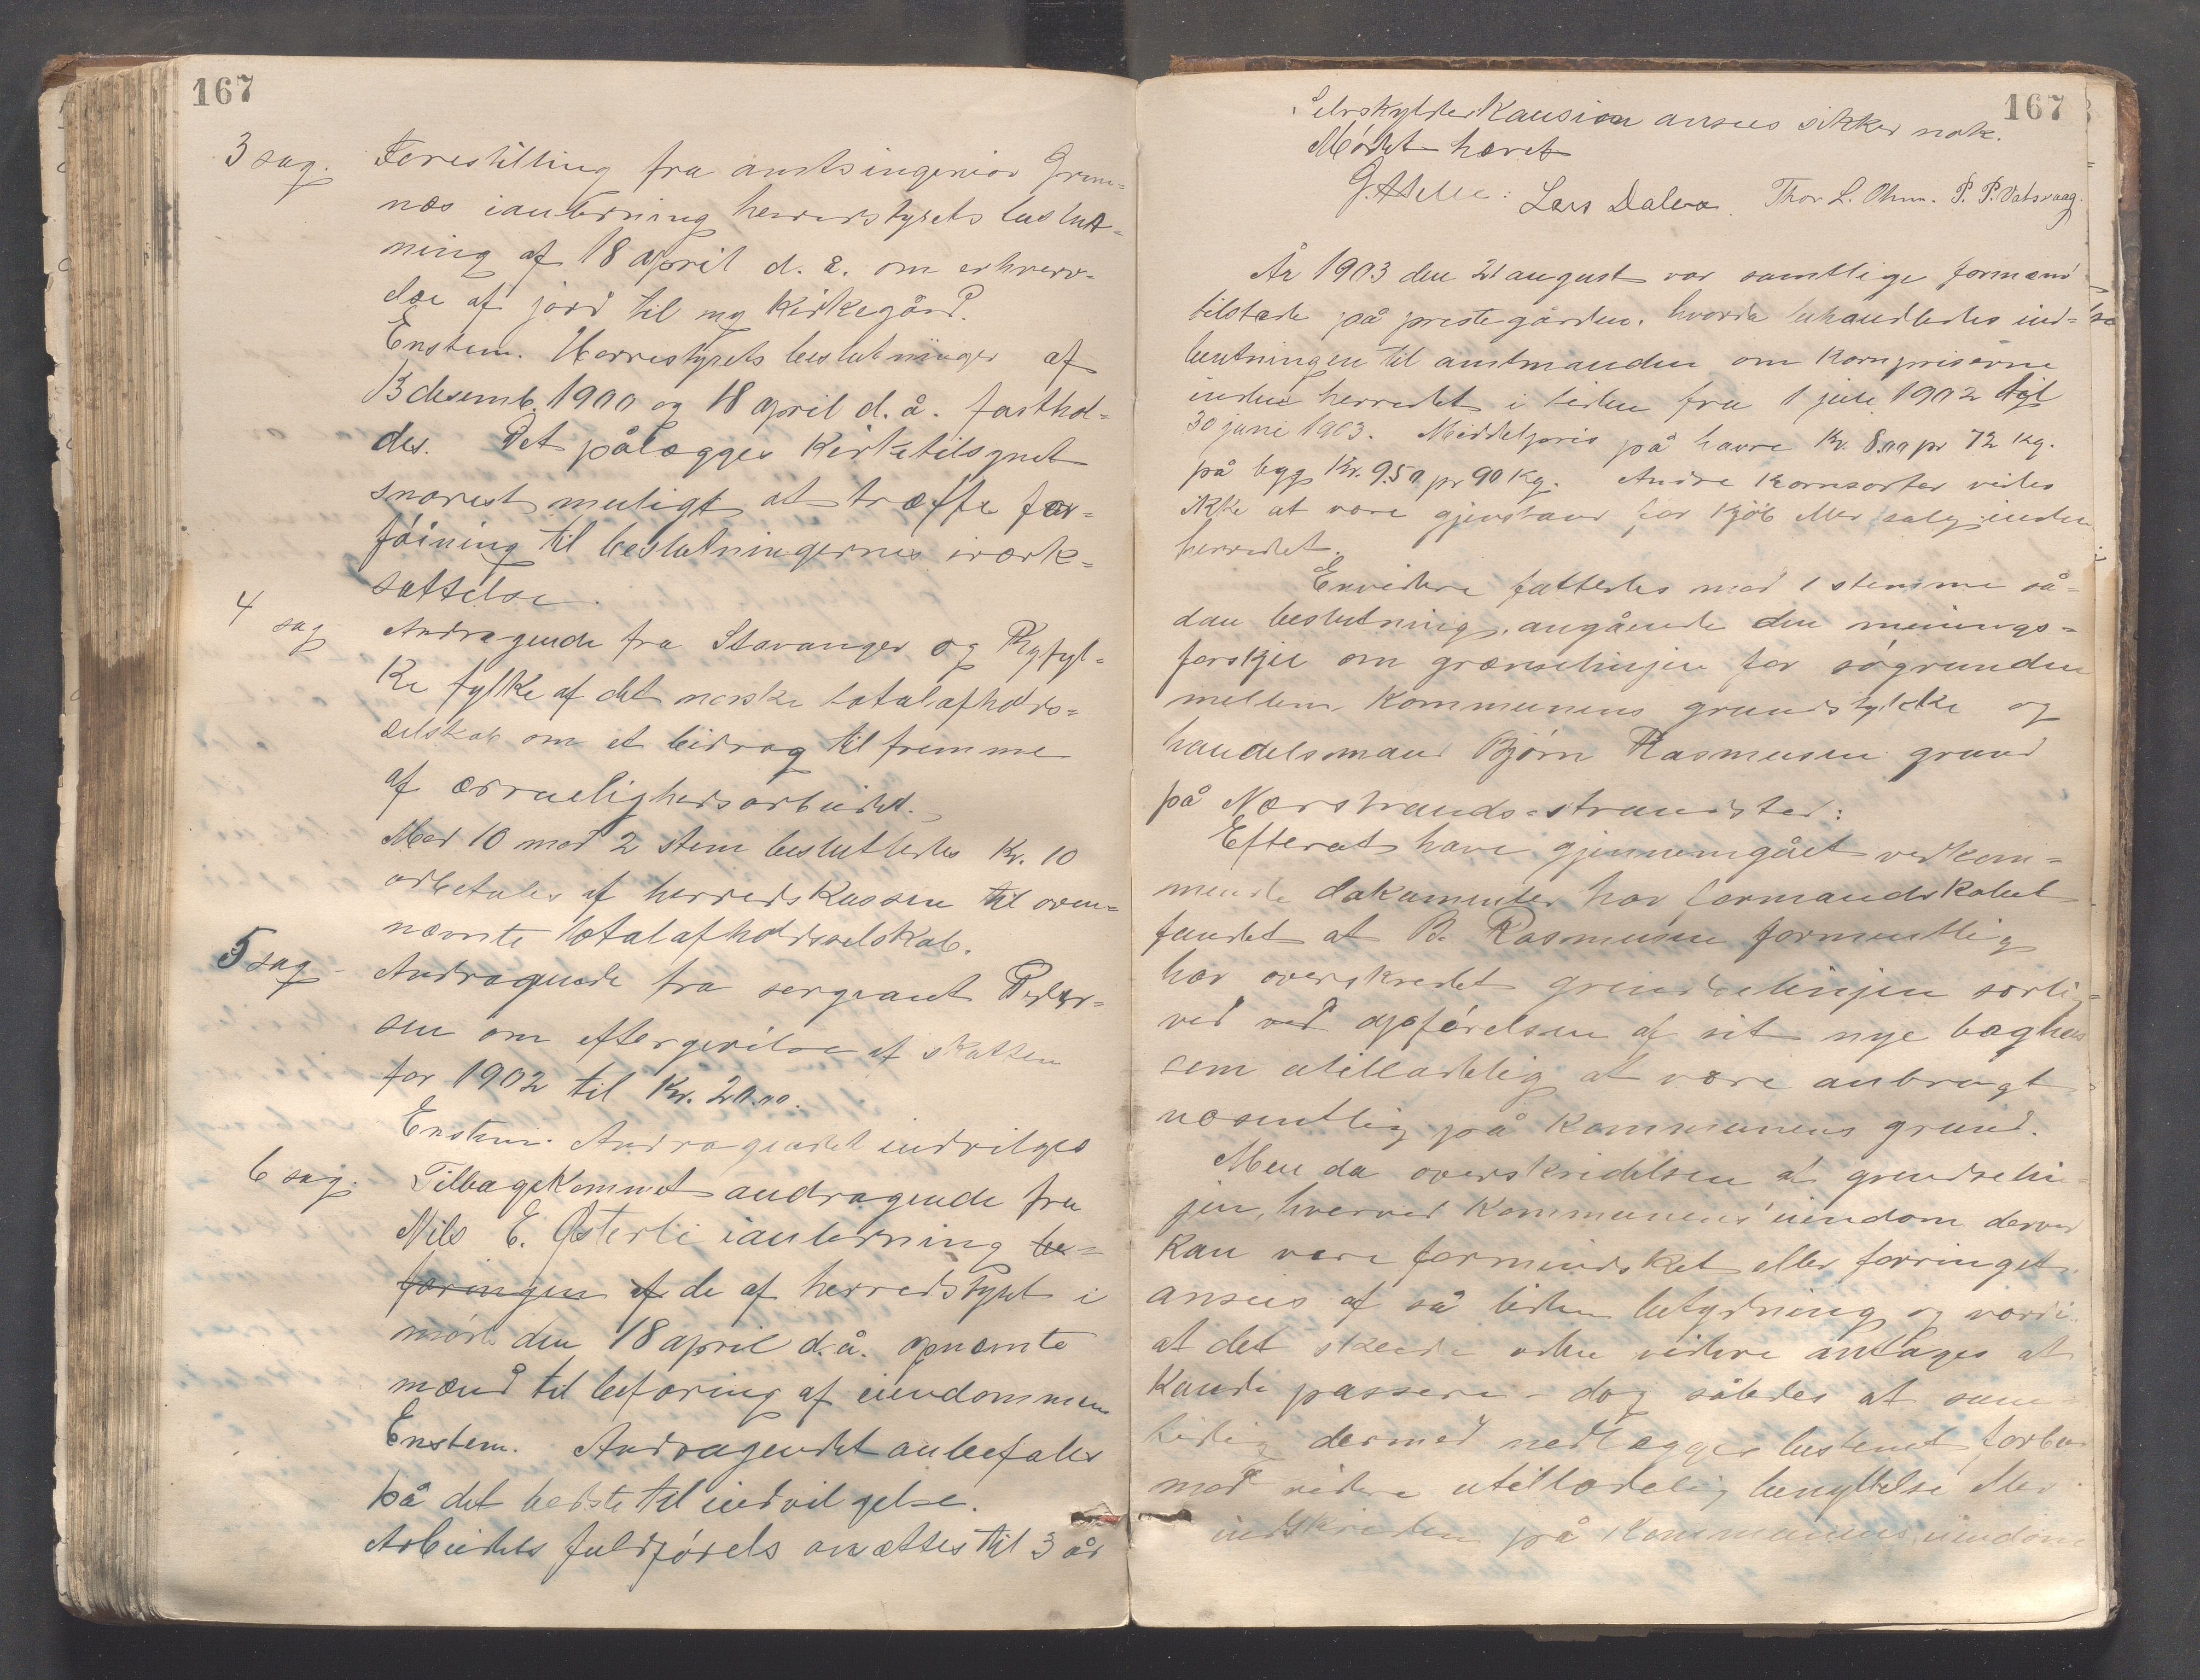 167
3 sag. Forestilling fra amtsingeniør Grim-
næs ianledning herredstyrets beslut-
ning af 18 april d. å. om erhverv-
else af jord til ny kirkegård.
Enstem. Herrestyrets beslutninger af
13 desemb. 1900 og 18 april d. å. fasthol-
des. Det pålægges kirketilsynet
snarest muligt at træffe for-
føining til beslutningernes iværk-
sættelse.
4 sag Andragende fra Stavanger og Ryfyl-
ke fylke af det norske totalafholds-
selskab om et bidrag til fremme
af ædruelighedsarbeidet.
Med 10 mod 2 stem besluttedes Kr. 10
udbetales af herredskassen til oven-
nævnte totalafholdsselskab.
5 sag - Andragende fra sergeant Peder-
sen om eftergivelse af skatten
for 1902 til Kr. 20.00.
Enstem. Andragendet indvilges
6 sag. Tilbagekommet andragende fra
Nils E. Østerli ianledning be-
faringen af de af herredstyret i
møde den 18 april d. å. opnævnte
mænd til befaring af eiendommen
Enstem. Andragendet anbefales
på det bedste til indvilgelse.
Arbeidets fuldførels ansættes til 3 år
167
Selvskylderkausion ansees sikker nok.
Mødet hævet
Lars Dalva. Thor L. P. P. Vatsvaag.
År 1903 den 21 august var samtlige formænd
tilstede på prestegården, hvorda behandledes ind-
beretningen til amtmanden om kornpriserne
inden herredet i tiden fra 1 juli 1902 til
30 juni 1903. Middelpris på havre Kr. 8.00 pr 72 kg.
på bygg Kr. 9.50 pr 90 kg. Andre kornsorter vides
ikke at være gjenstand for kjøb eller salg inden
herredet.
Envidere fattedes mod 1 stemme så-
dan beslutning, angående den menings-
forskjel om grænselinjen for søgrunden
mellem kommunens grundstykke og
handelsmand Bjørn Rasmusen grund
på Nærstrands-strandsted:
Efterat have gjennemgået vedkom-
mende dokumenter har formandskabet
fundet at B. Rasmusen formentlig
har overskredet grændselinjen særlig
ved ved opførelsen af sit nye baghus
som utilladelig at være anbragt
væsentlig på kommunens grund.
Men da overskridelsen af grendselin-
jen, hvorved kommunens eiendom derved
kan være formindsket eller forringet
ansees af så liden betydning og værdi
at det skeede uden videre antages at
kunde passere - dog således at sam-
tidig dermed nedlægges bestemt forbud
mod videre utilladelig benyttelse eller
indskriden på kommunens eiendom